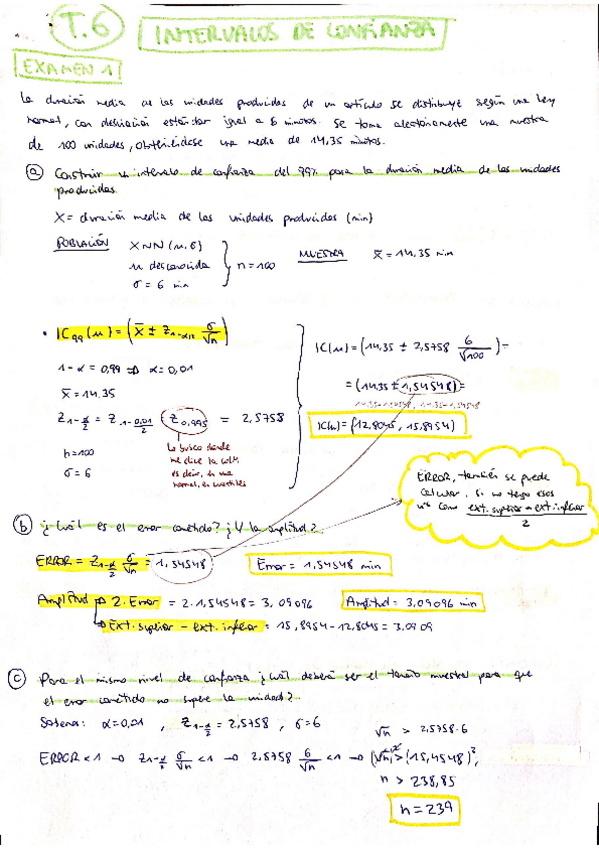 T.6 INTERVALOS DE CONFIANZA
EXAMEN 1
La duración media de las unidades producidas de un artículo se distribuye según una ley
normal, con desviación estándar igual a 6 minutos. Se toma aleatoriamente una muestra
de 100 unidades, obteniéndose una media de 14,35 minutos.
a) Construir un intervalo de confianza del 99% para la duración media de las unidades
producidas.
X = duración media de las unidades producidas (min)
POBLACIÓN X~N(μ, 6)
μ desconocida
σ = 6 min
n = 100
MUESTRA x̄ = 14,35 min
• IC99 (μ) = (x̄ ± Z1-α/2 σ/√n)
1-α = 0,99 ⇒ α = 0,01
x̄ = 14,35
Z1-α/2 = Z1-0,01/2 = Z0,995 = 2,5758
n = 100
σ = 6
Lo busco donde
me dice la
es decir, en una
normal, en cuantiles
IC(μ) = (14,35 ± 2,5758 6/√100) =
= (14,35 ± 1,54548) =
14,35-1,54548, 14,35-1,54548
IC(μ) = (12,8045, 15,8954)
ERROR, también se puede
calcular, si no tengo esos
nºs como ext. superior - ext. inferior / 2
b) ¿Cuál es el error cometido? ¿Y la amplitud?
ERROR = Z1-α/2 σ/√n = 1,54548
Error = 1,54548 min
Amplitud → 2. Error = 2·1,54548 = 3,09096
Amplitud = 3,09096 min
→ Ext. superior - ext. inferior = 15,8954 - 12,8045 = 3,0909
c) Para el mismo nivel de confianza ¿Cuál deberá ser el tamaño muestral para que
el error cometido no supere la unidad?
α = 0,01 , Z1-α/2 = 2,5758 , σ = 6
ERROR < 1 → Z1-α/2 σ/√n < 1 → 2,5758 6/√n < 1 →
√n > 2,5758·6
(√n)² > (15,4548)²,
n > 238,85
n = 239